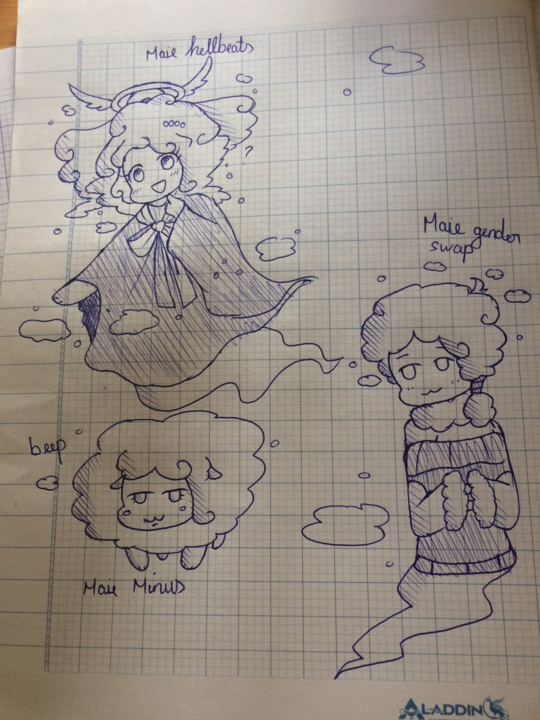 Maie hellbeats
?
Maie gender
swap
beep
Maie Minus
ALADDIN